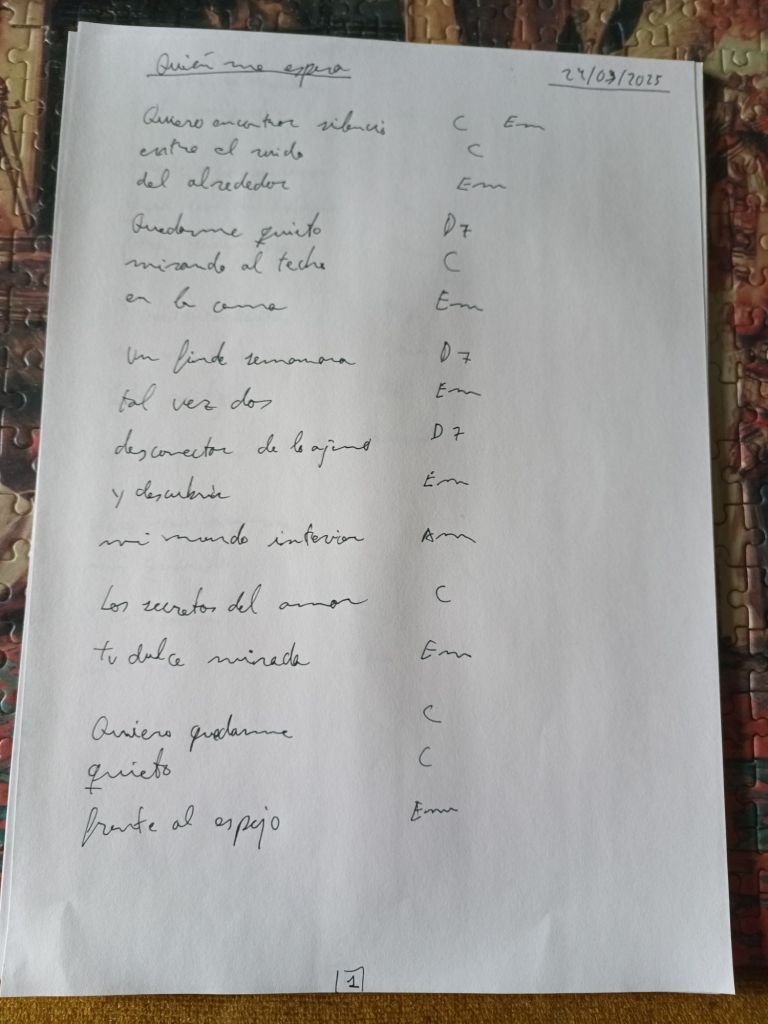 Quién me espera 24/03/2025
Quiero encontrar silencio C Em
entre el ruido C
del alrededor Em
Quedarme quieto D7
mirando al techo C
en la cama Em
Un finde semana D7
tal vez dos Em
desconectar de lo ajeno D7
y descubrir Em
mi mundo interior Am
Los secretos del amor C
tu dulce mirada Em
Quiero quedarme C
quieto C
frente al espejo Em
1